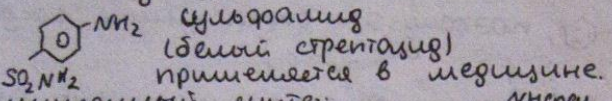 NH2 сульфоамид
(белый стрептоцид)
SO2NH2 применяется в медицине.